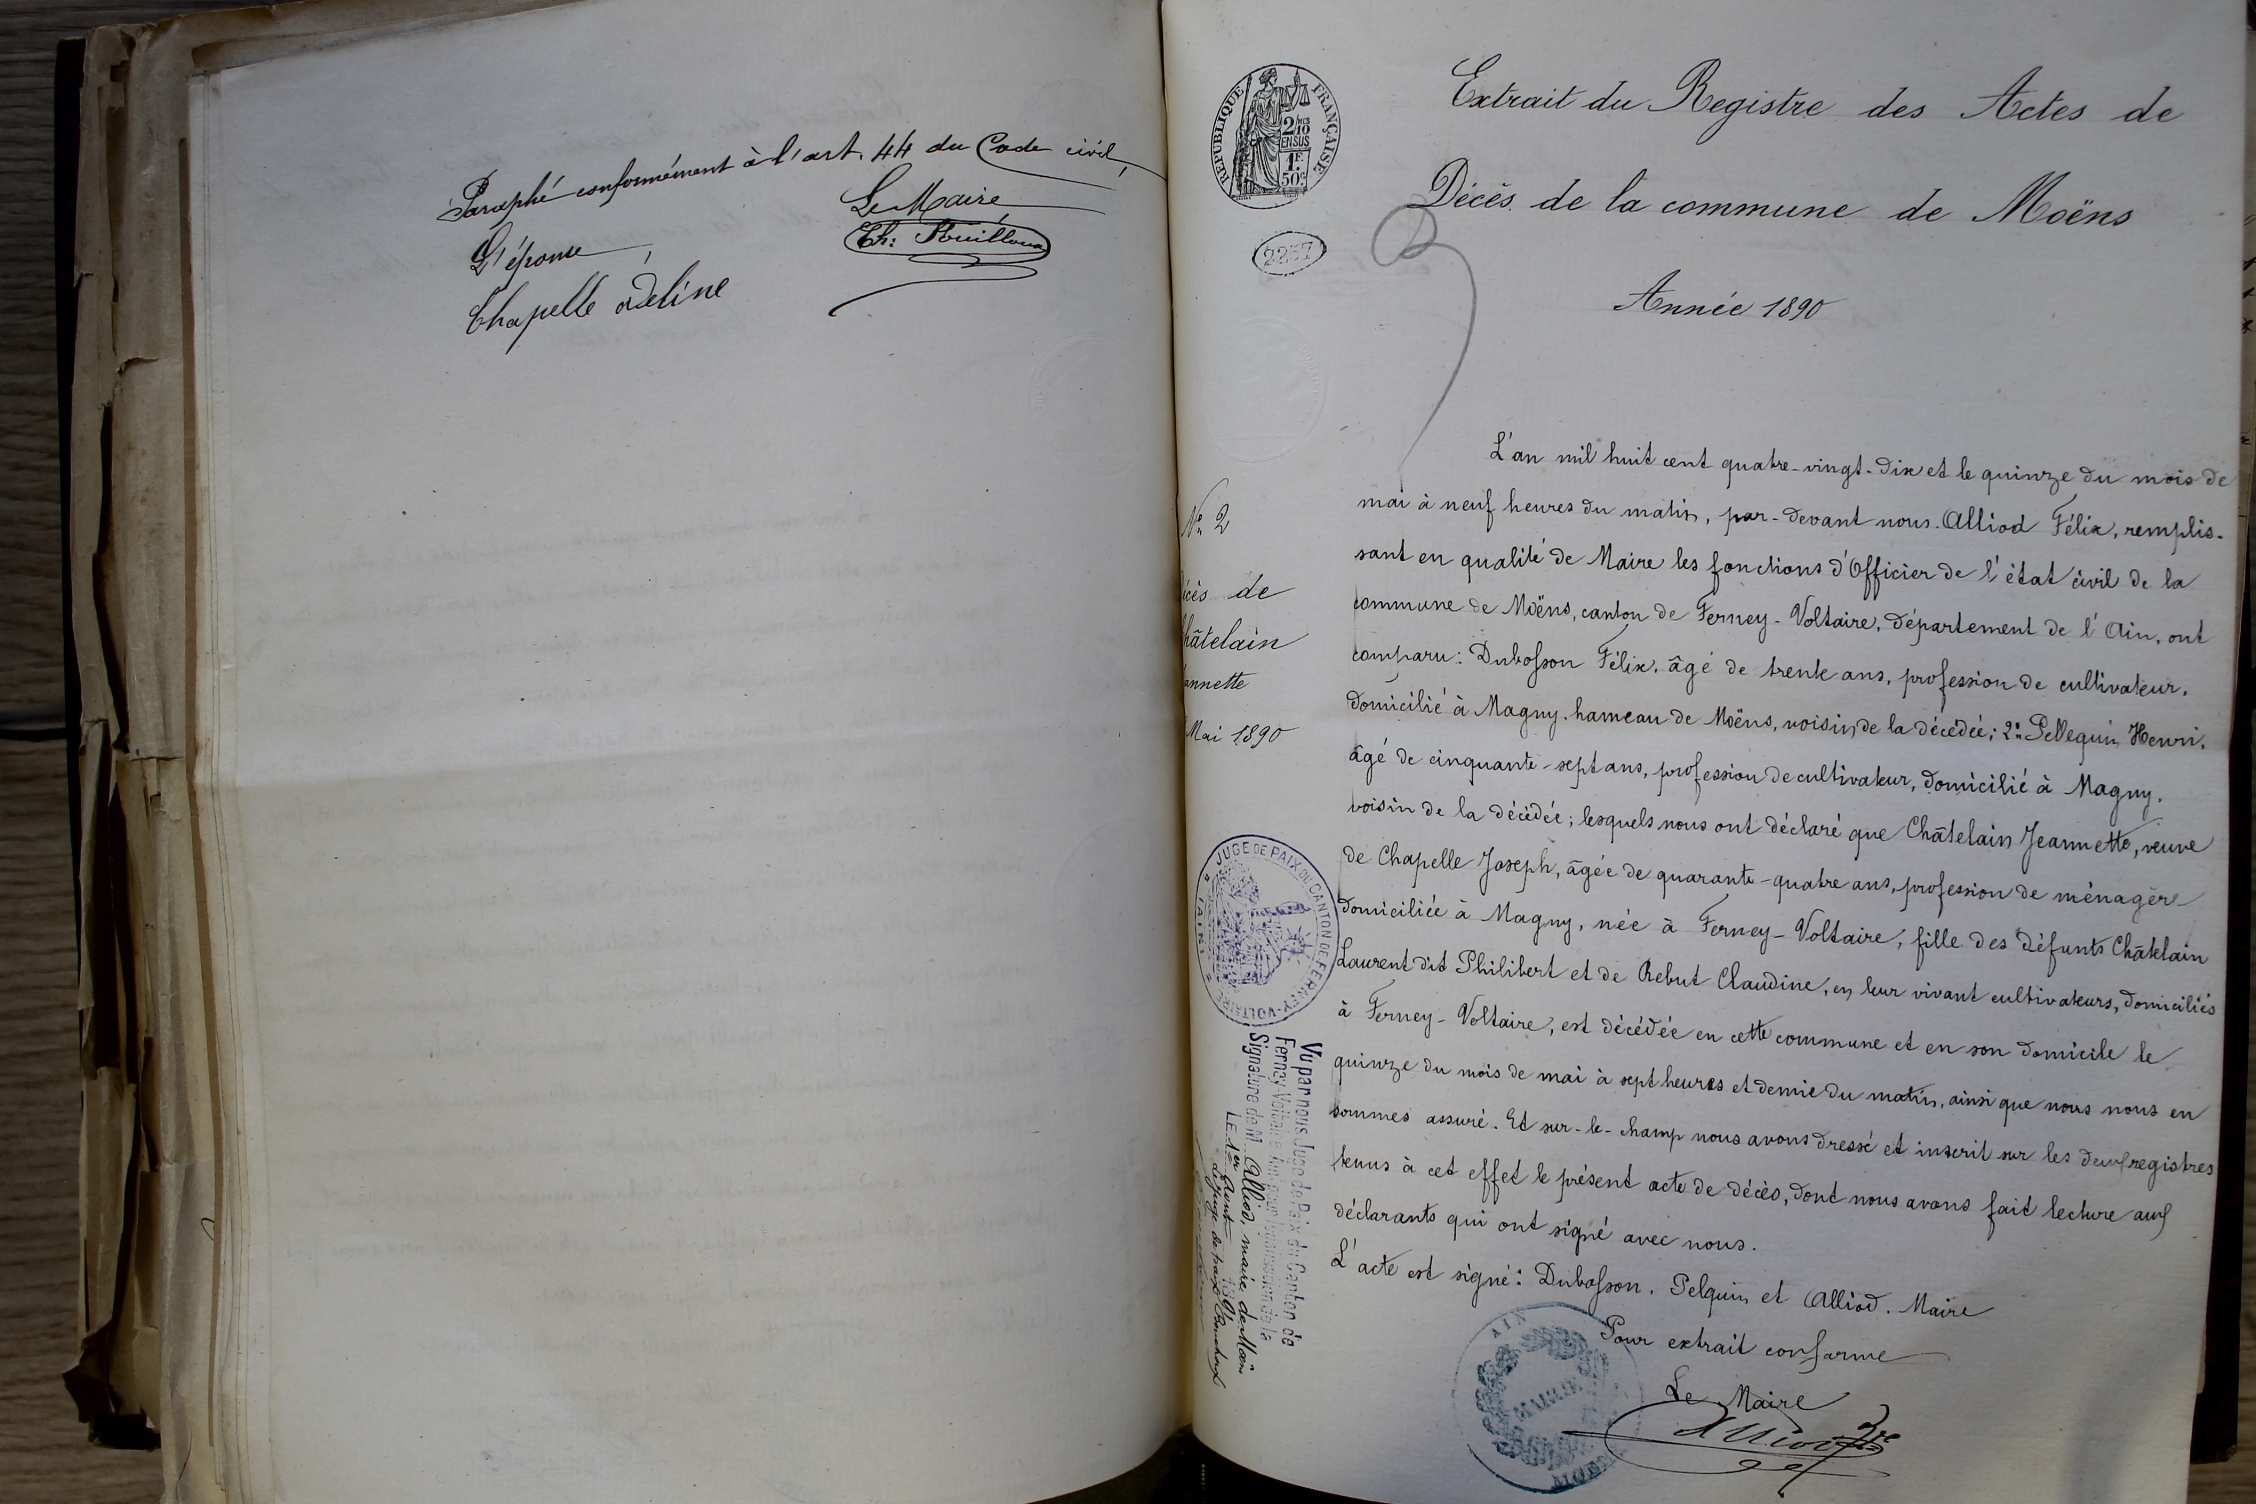 Paraphé conformément à l'art. 44 du Code civil,
Le Maire
L'épouse,
Chapelle Adeline
RÉPUBLIQUE FRANÇAISE
2/10
EN SUS
1F.
50c
2257
Extrait du Registre des Actes de
Décès de la commune de Moëns
Année 1890
No 2
écès de
hâtelain
annette
Mai 1890
L'an mil huit cent quatre-vingt-dix et le quinze du mois de
mai à neuf heures du matin, par-devant nous Alliod Félix, remplis-
sant en qualité de Maire les fonctions d'Officier de l'état civil de la
commune de Moëns, canton de Ferney-Voltaire, département de l'Ain, ont
comparu: Dubosson Félix, âgé de trente ans, profession de cultivateur,
domicilié à Magny, hameau de Moëns, voisin de la décédée; 2o Pellequin Henri,
âgé de cinquante-sept ans, profession de cultivateur, domicilié à Magny,
voisin de la décédée; lesquels nous ont déclaré que Châtelain Jeannette, veuve
de Chapelle Joseph, âgée de quarante-quatre ans, profession de ménagère
domiciliée à Magny, née à Ferney-Voltaire, fille des défunts Châtelain
Laurent dit Philibert et de Rebut Claudine, en leur vivant cultivateurs, domiciliés
à Ferney-Voltaire, est décédée en cette commune et en son domicile le
quinze du mois de mai à sept heures et demie du matin, ainsi que nous nous en
sommes assuré. Et sur-le-champ nous avons dressé et inscrit sur les deux registres
tenus à cet effet le présent acte de décès, dont nous avons fait lecture aux
déclarants qui ont signé avec nous.
L'acte est signé: Dubosson, Pelquin et Alliod. Maire
Pour extrait conforme
Le Maire
Alliod
JUGE DE PAIX DU CANTON DE FERNEY-VOLTAIRE
(AIN)
Vu par nous Juge de Paix du Canton de
Ferney-Voltaire pour légalisation de la
Signature de M. Alliod, maire de Moëns
LE 1er Août 189
Le juge de paix
AIN
MAIRIE